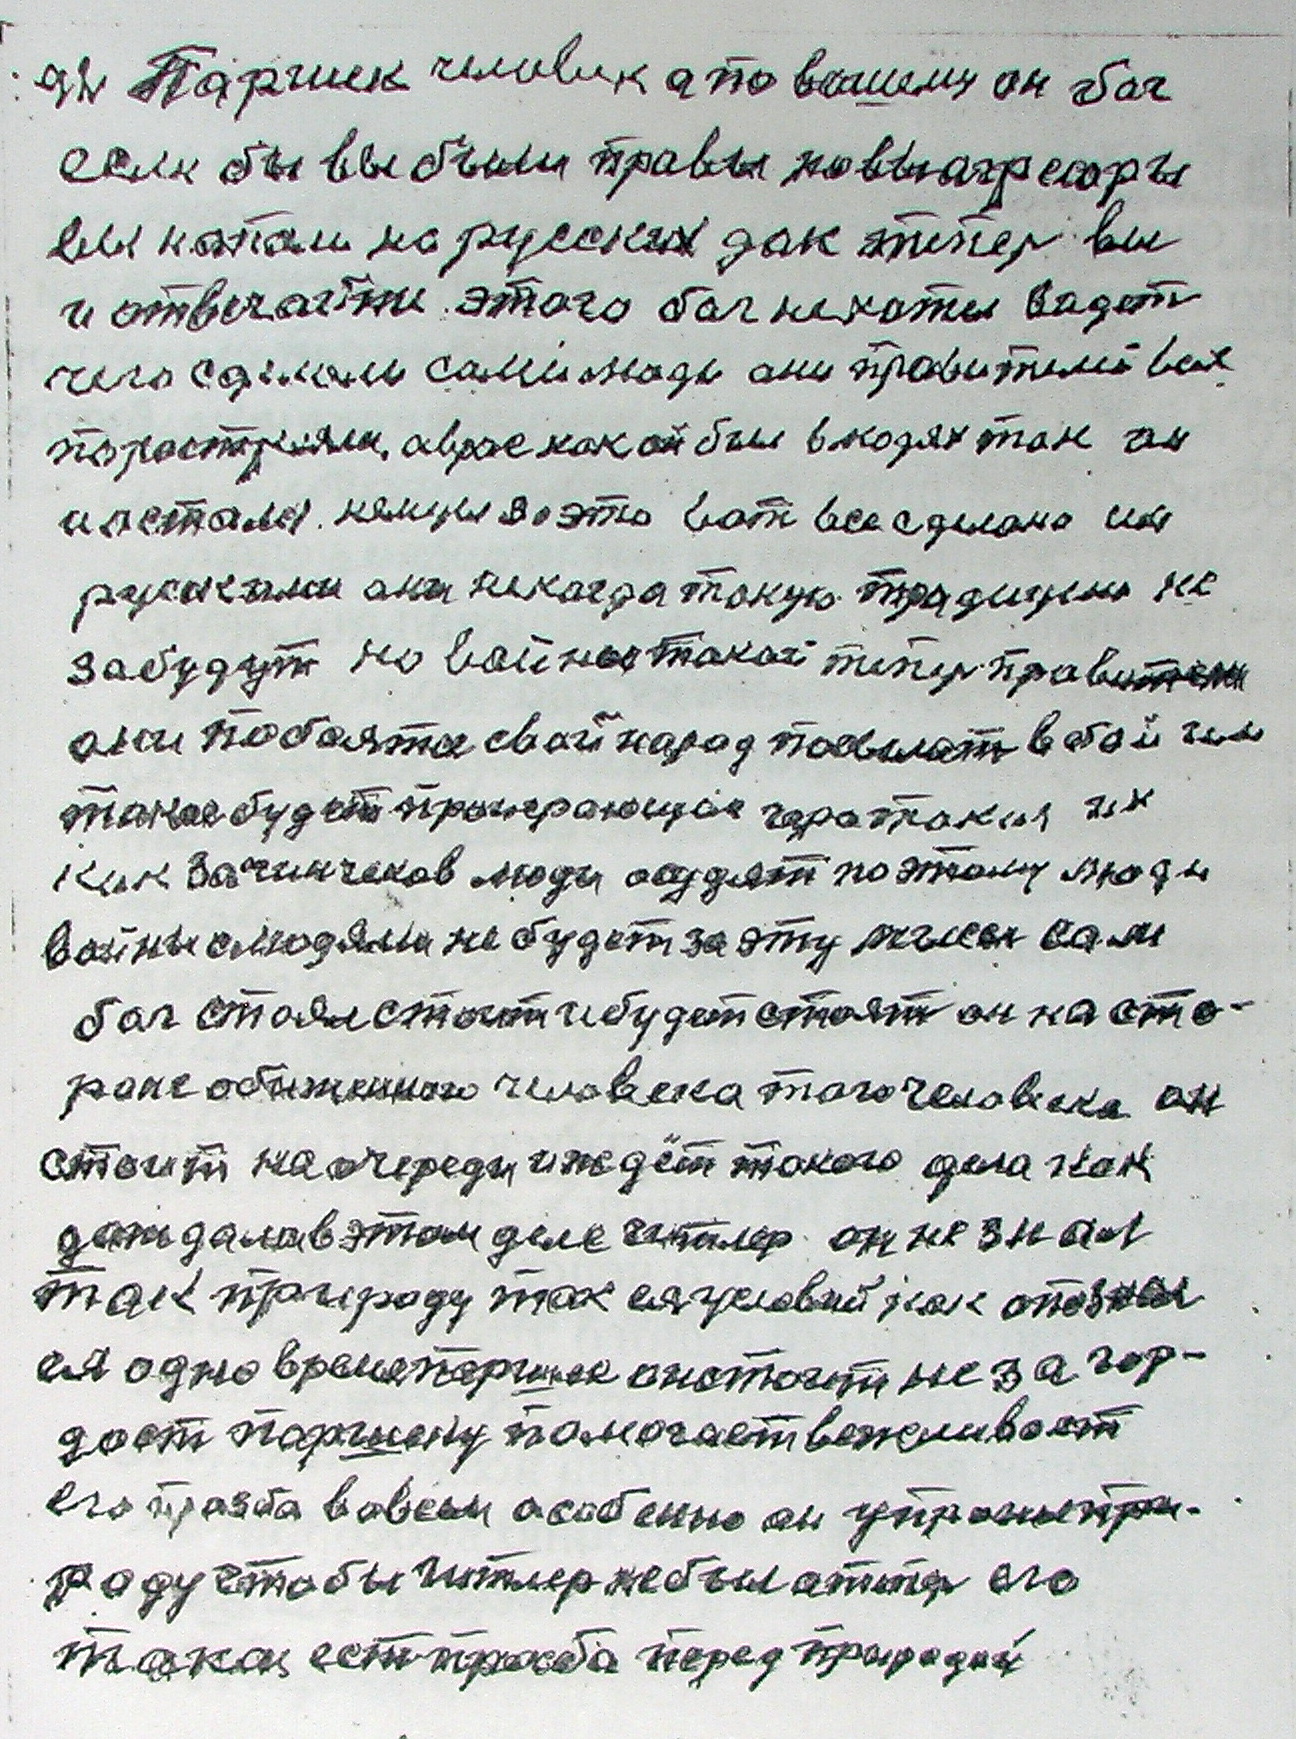 92 Паршек человик а по вашему он бог
если бы вы были правы но вы агресоры
вы напали на русских дак тепер вы
и отвечайте этого бог не хотел видет
чего сделали сами люди они правители все
построили, а враг как он был в людях так он
и остался немцы за это вот все сделано им
рускими они некогда такую традицию не
забудут но войны такой тепер правители
они побоятся свой народ посылат в бой им
такое будет проиграющая гора такия их
как зачинчеков люди осудят поэтому люди
войны с людями не будет за эту мысл сам
бог стоял стоит и будет стоят он на сто-
роне обиженного человека того человека он
стоит на очереди и ждёт такого дела как
дождался в этом деле Гитлер он не знал
так природу так ея условий как опознал
ея одно время паршек он стоит не за гор-
дост паршеку помогает вежливост
его прозба во всем особенно он упросил при-
роду чтобы Гитлер не был а тепер его
такая ест прозба перед природой